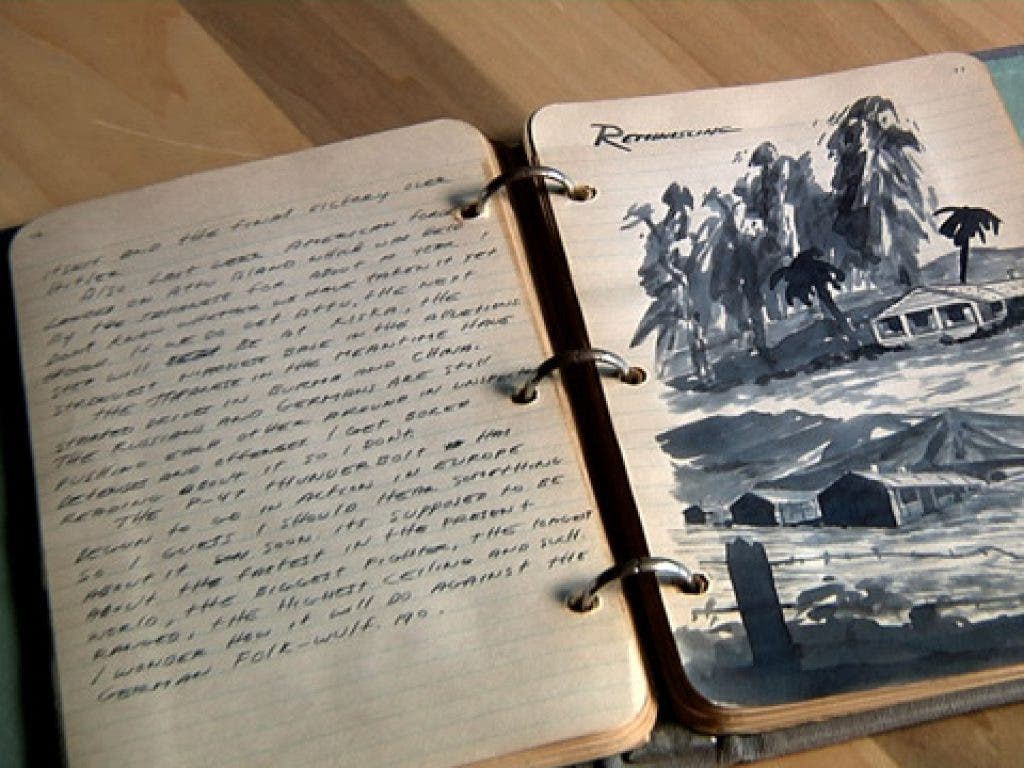 ITSELF AND THE FINAL VICTORY OVER
HITLER.
ALSO LAST WEEK AMERICAN FORCES
LANDED ON ATTU ISLAND WHICH WAS HELD
BY THE JAPANESE FOR ABOUT A YEAR. I
DON'T KNOW WHETHER WE HAVE TAKEN IT YET
IF WE DO GET ATTU, THE NEXT
STEP WILL BE AT KISKA, THE
STRONGEST JAPANESE BASE IN THE ALEUTIANS
THE JAPANESE IN THE MEANTIME HAVE
STARTED DRIVES IN BURMA AND CHINA.
THE RUSSIANS AND GERMANS ARE STILL
PUSHING EACH OTHER AROUND IN
DEFENSE AND OFFENSES I GET BORED
READING ABOUT IT SO I DON'T.
THE P-47 THUNDERBOLT HAS
BEGUN TO GO IN ACTION IN EUROPE
SO I GUESS I SHOULD HEAR SOMETHING
ABOUT IT SOON. ITS SUPPOSED TO BE
ABOUT THE FASTEST IN THE PRESENT
WORLD, THE BIGGEST FIGHTER, THE LONGEST
RANGED, THE HIGHEST CEILING AND SUCH.
I WONDER HOW IT WILL DO AGAINST THE
GERMAN FOLK-WULF. 190.
REMINISCING